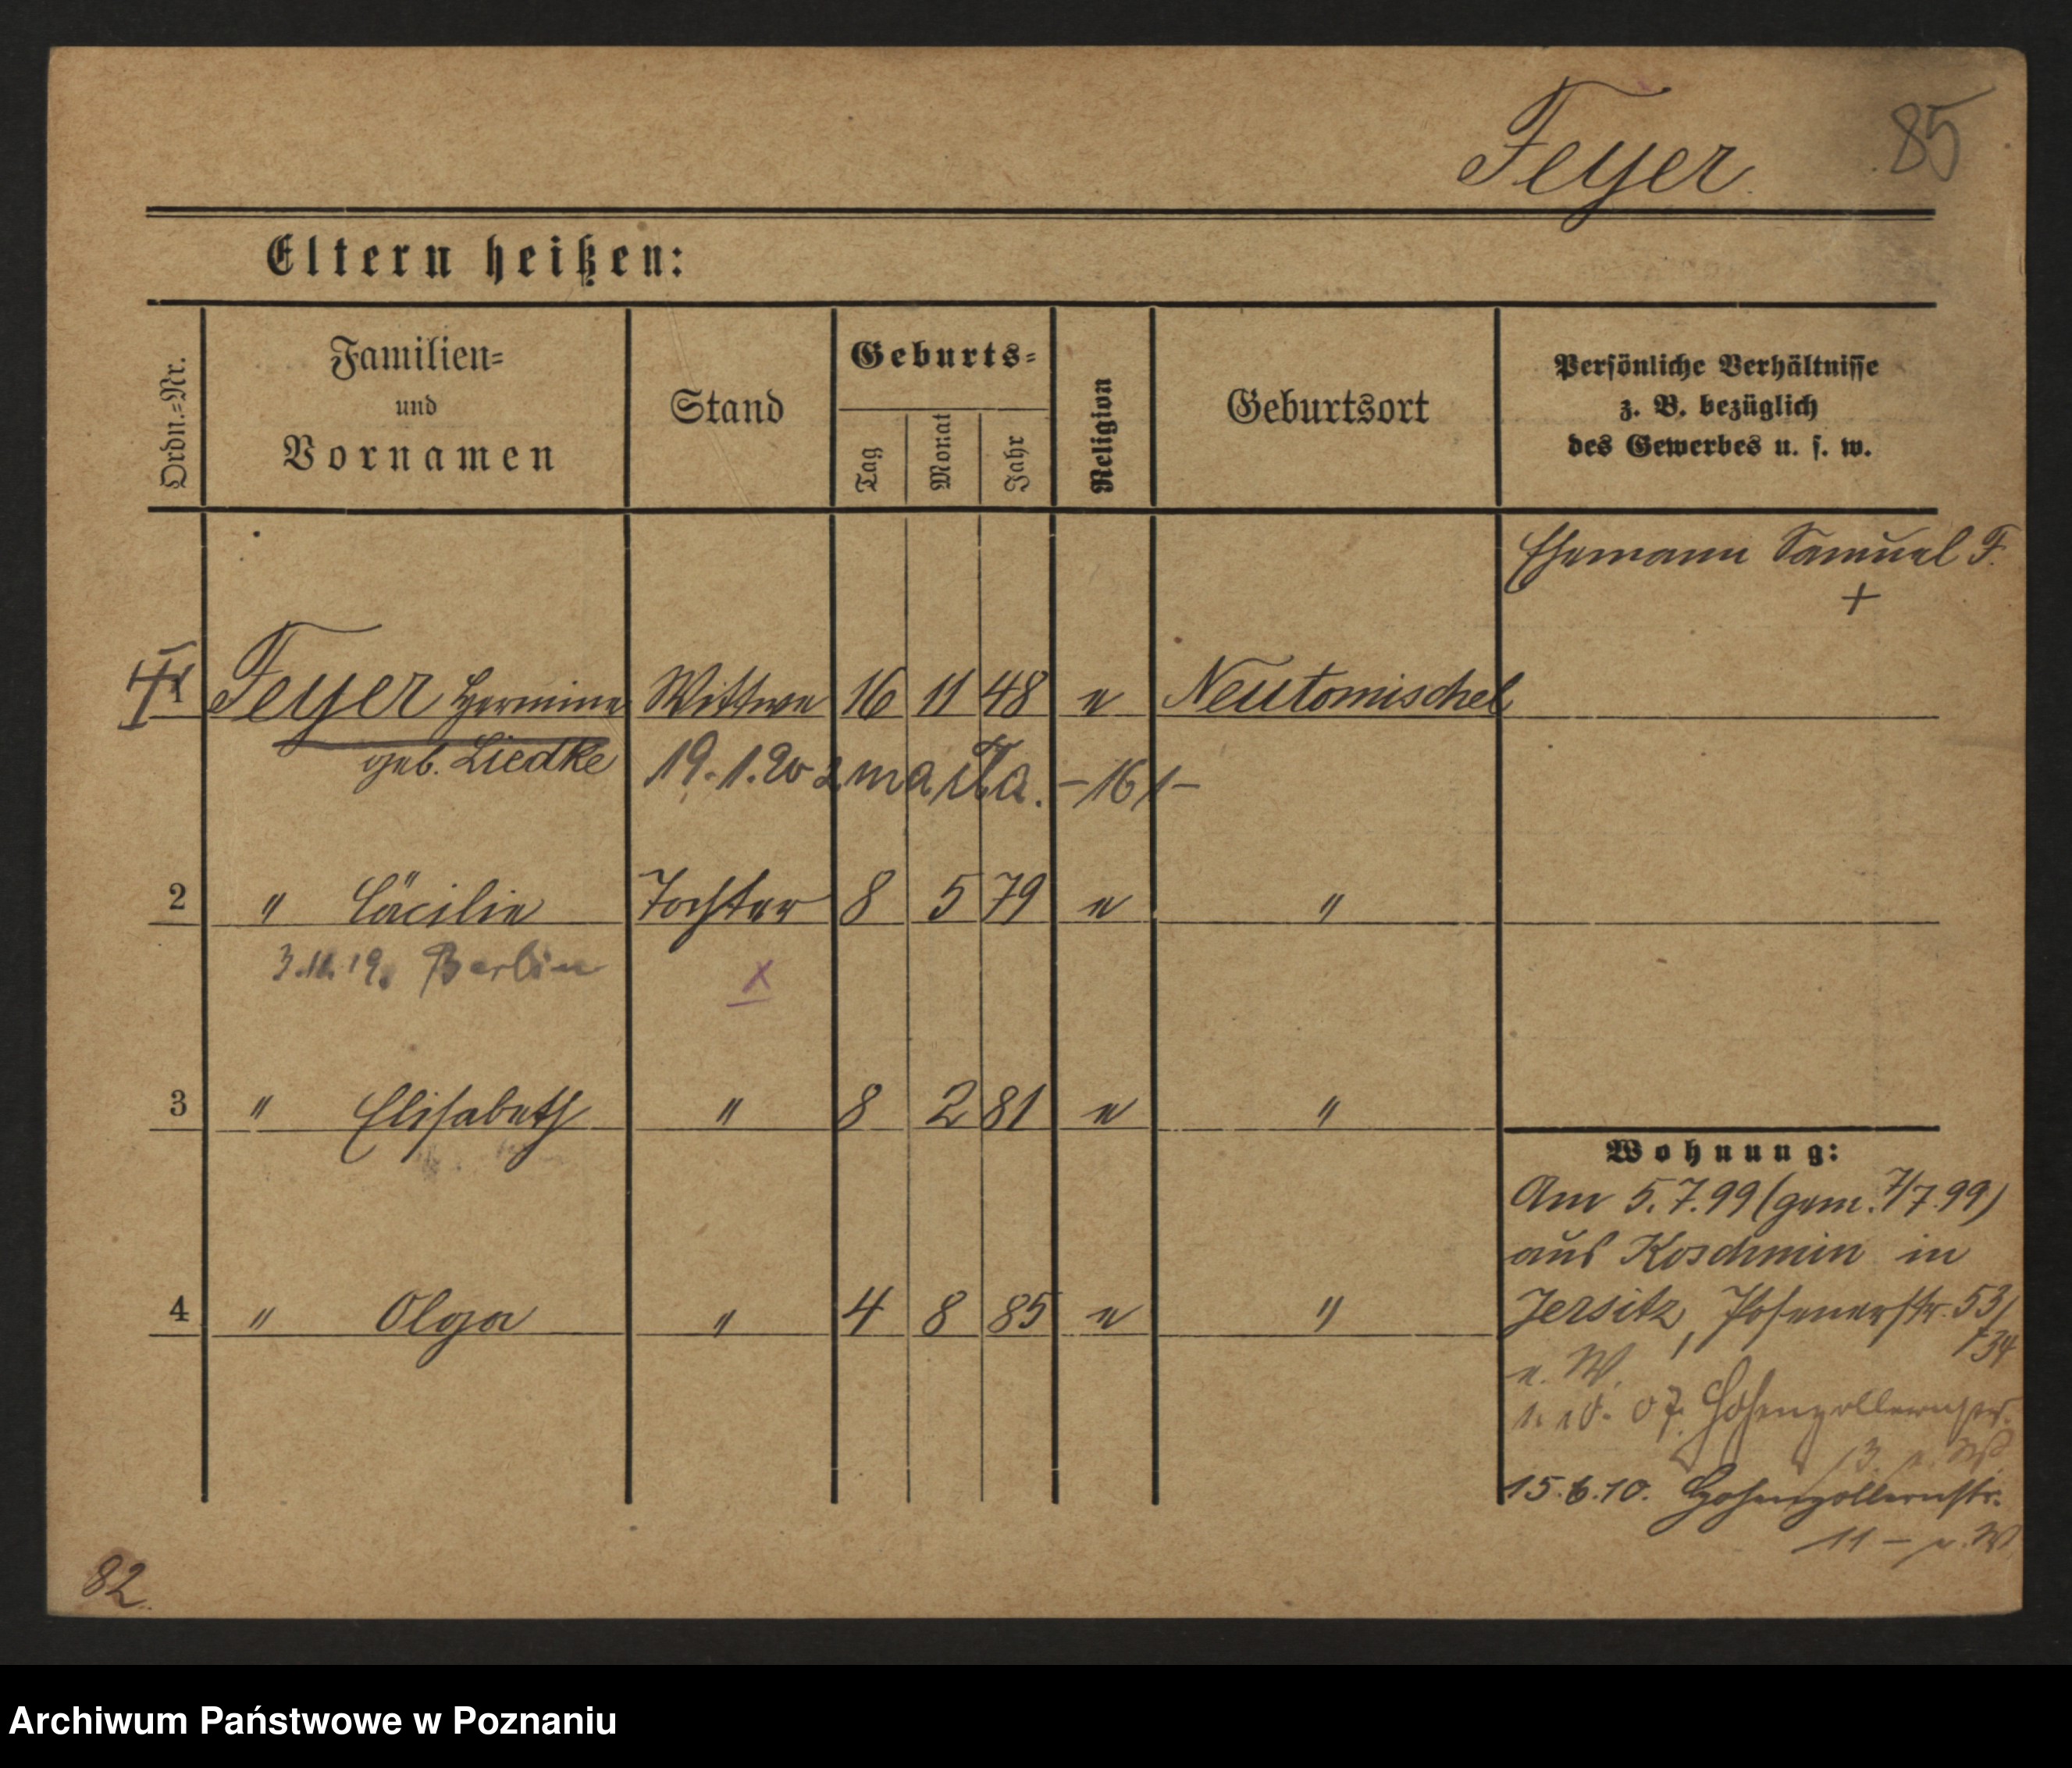 Feyer 85
Eltern heißen:
Ordn.-Nr.
Familien-
und
Vornamen
Stand
Geburts-
Tag
Monat
Jahr
Religion
Geburtsort
Persönliche Verhältnisse
z. B. bezüglich
des Gewerbes u. s. w.
Ehemann Samuel F.
+
1 Feyer Hermine Wittwe 16 11 48 e Neutomischel
geb. Liedke 19.1.20 zmarła. -161-
2 " Cäcilie Tochter 8 5 79 e "
3.11.19. Berlin x
3 " Elisabeth " 8 2 81 e "
Wohnung:
Am 5.7.99 (gem. 7/7.99)
aus Koschmin in
4 " Olga " 4 8 85 e "
Jersitz, Posenerstr. 53/
34
e. W.
07. Hohenzollernstr.
13.
15.6.10. Hohenzollernstr.
11 - e. W.
82.
Archiwum Państwowe w Poznaniu